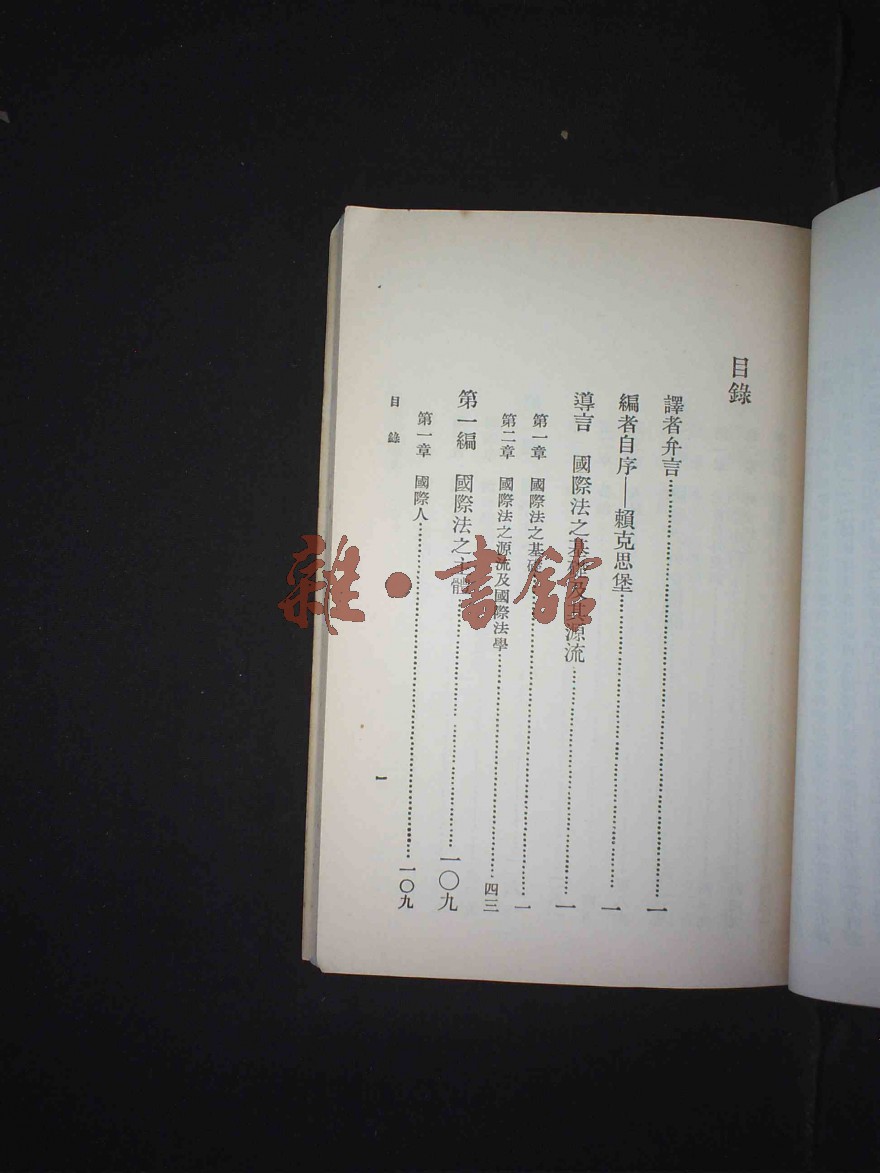 目錄
譯者弁言……一
編者自序——賴克思堡……一
導言　國際法之基礎及其源流……一
第一章　國際法之基礎……一
第二章　國際法之源流及國際法學……四三
第一編　國際法之主體……一〇九
第一章　國際人……一〇九
目錄
一
雜·書館